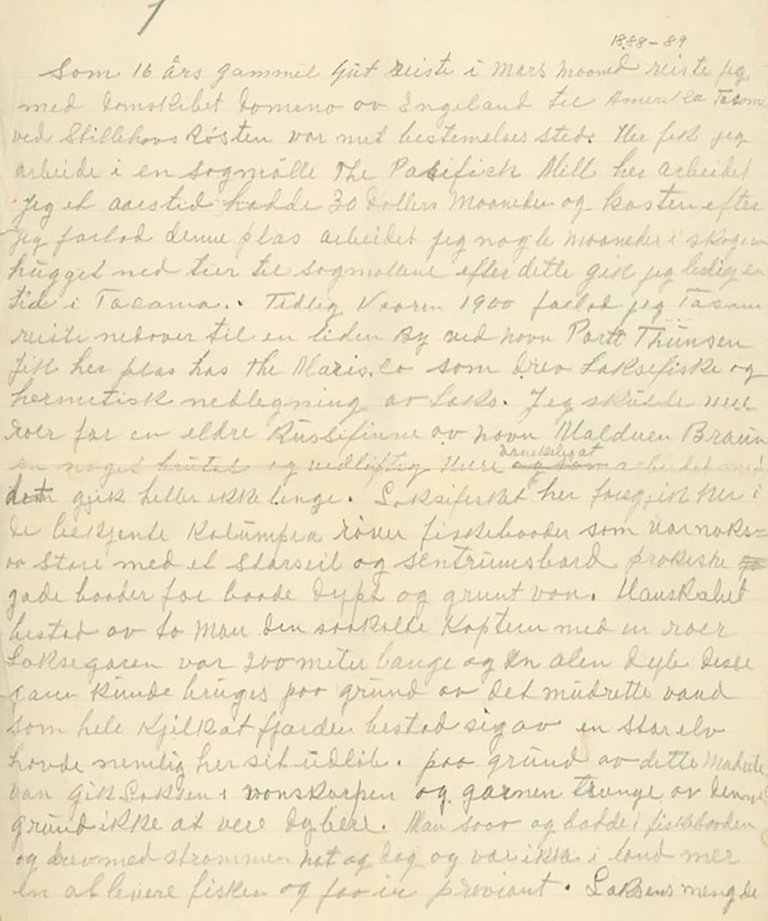 1
1888-89
Som 16 års gammel Gut reiste i Mars Mooned reiste jeg
med Damskibet Domeno av Engeland til Amerika Tacoma
ved Stillehavs Kösten var mit bestemelses sted. Her fik jeg
arbeide i en sogmölle The Pasifick Mill her arbeidet
jeg et aarstid hadde 30 Dollers Mooneden og kosten efter
jeg forlod denne plas arbeidet jeg nogle Mooneder i skogen
hugget ned tær til sogmøllene efter dette gik jeg ledig en
tid i Tacoma. Tedlig Vaaren 1900 forlod jeg Tacoma
reiste nedover til en liden By ved navn Portt Thunsen
fik her plas hos The Maris. Co som drev Laksefiske og
hermetisk nedlegning av Laks. Jeg skulde
roer for en eldre Russefinne av navn Malduen Braun
en noget brutel og vedløftig Herre vanskeligat arbeidet med
det gik heller ikke lenge. Laksefisket her foregik her i
de bekjente Kolumpea röver fiskebaader som var noks=
aa store med et Storseil og sentrumsbord prakeiske
gode baader for baade dypt og grunt van. Manskabet
bestod av to Man den saakalte Kaptein med en roer
Laksegaren var 200 meter lange og en alen dybe disse
garn kunde bruges paa grund av det mudrette vand
som hele Kjilkat fjorden bestod sig av en stor elv
havde nemlig her sit udløb. paa grund av dette Mudrete
van gik Laksen i vanskorpen og garnen trenge av denne
grund ikke at vere dybere. Man soov og badde i fiskebaaden
og drev med strømmen nat og dag og var ikke i land mer
en at levere fisken og faa in proviant. Laksens mengde